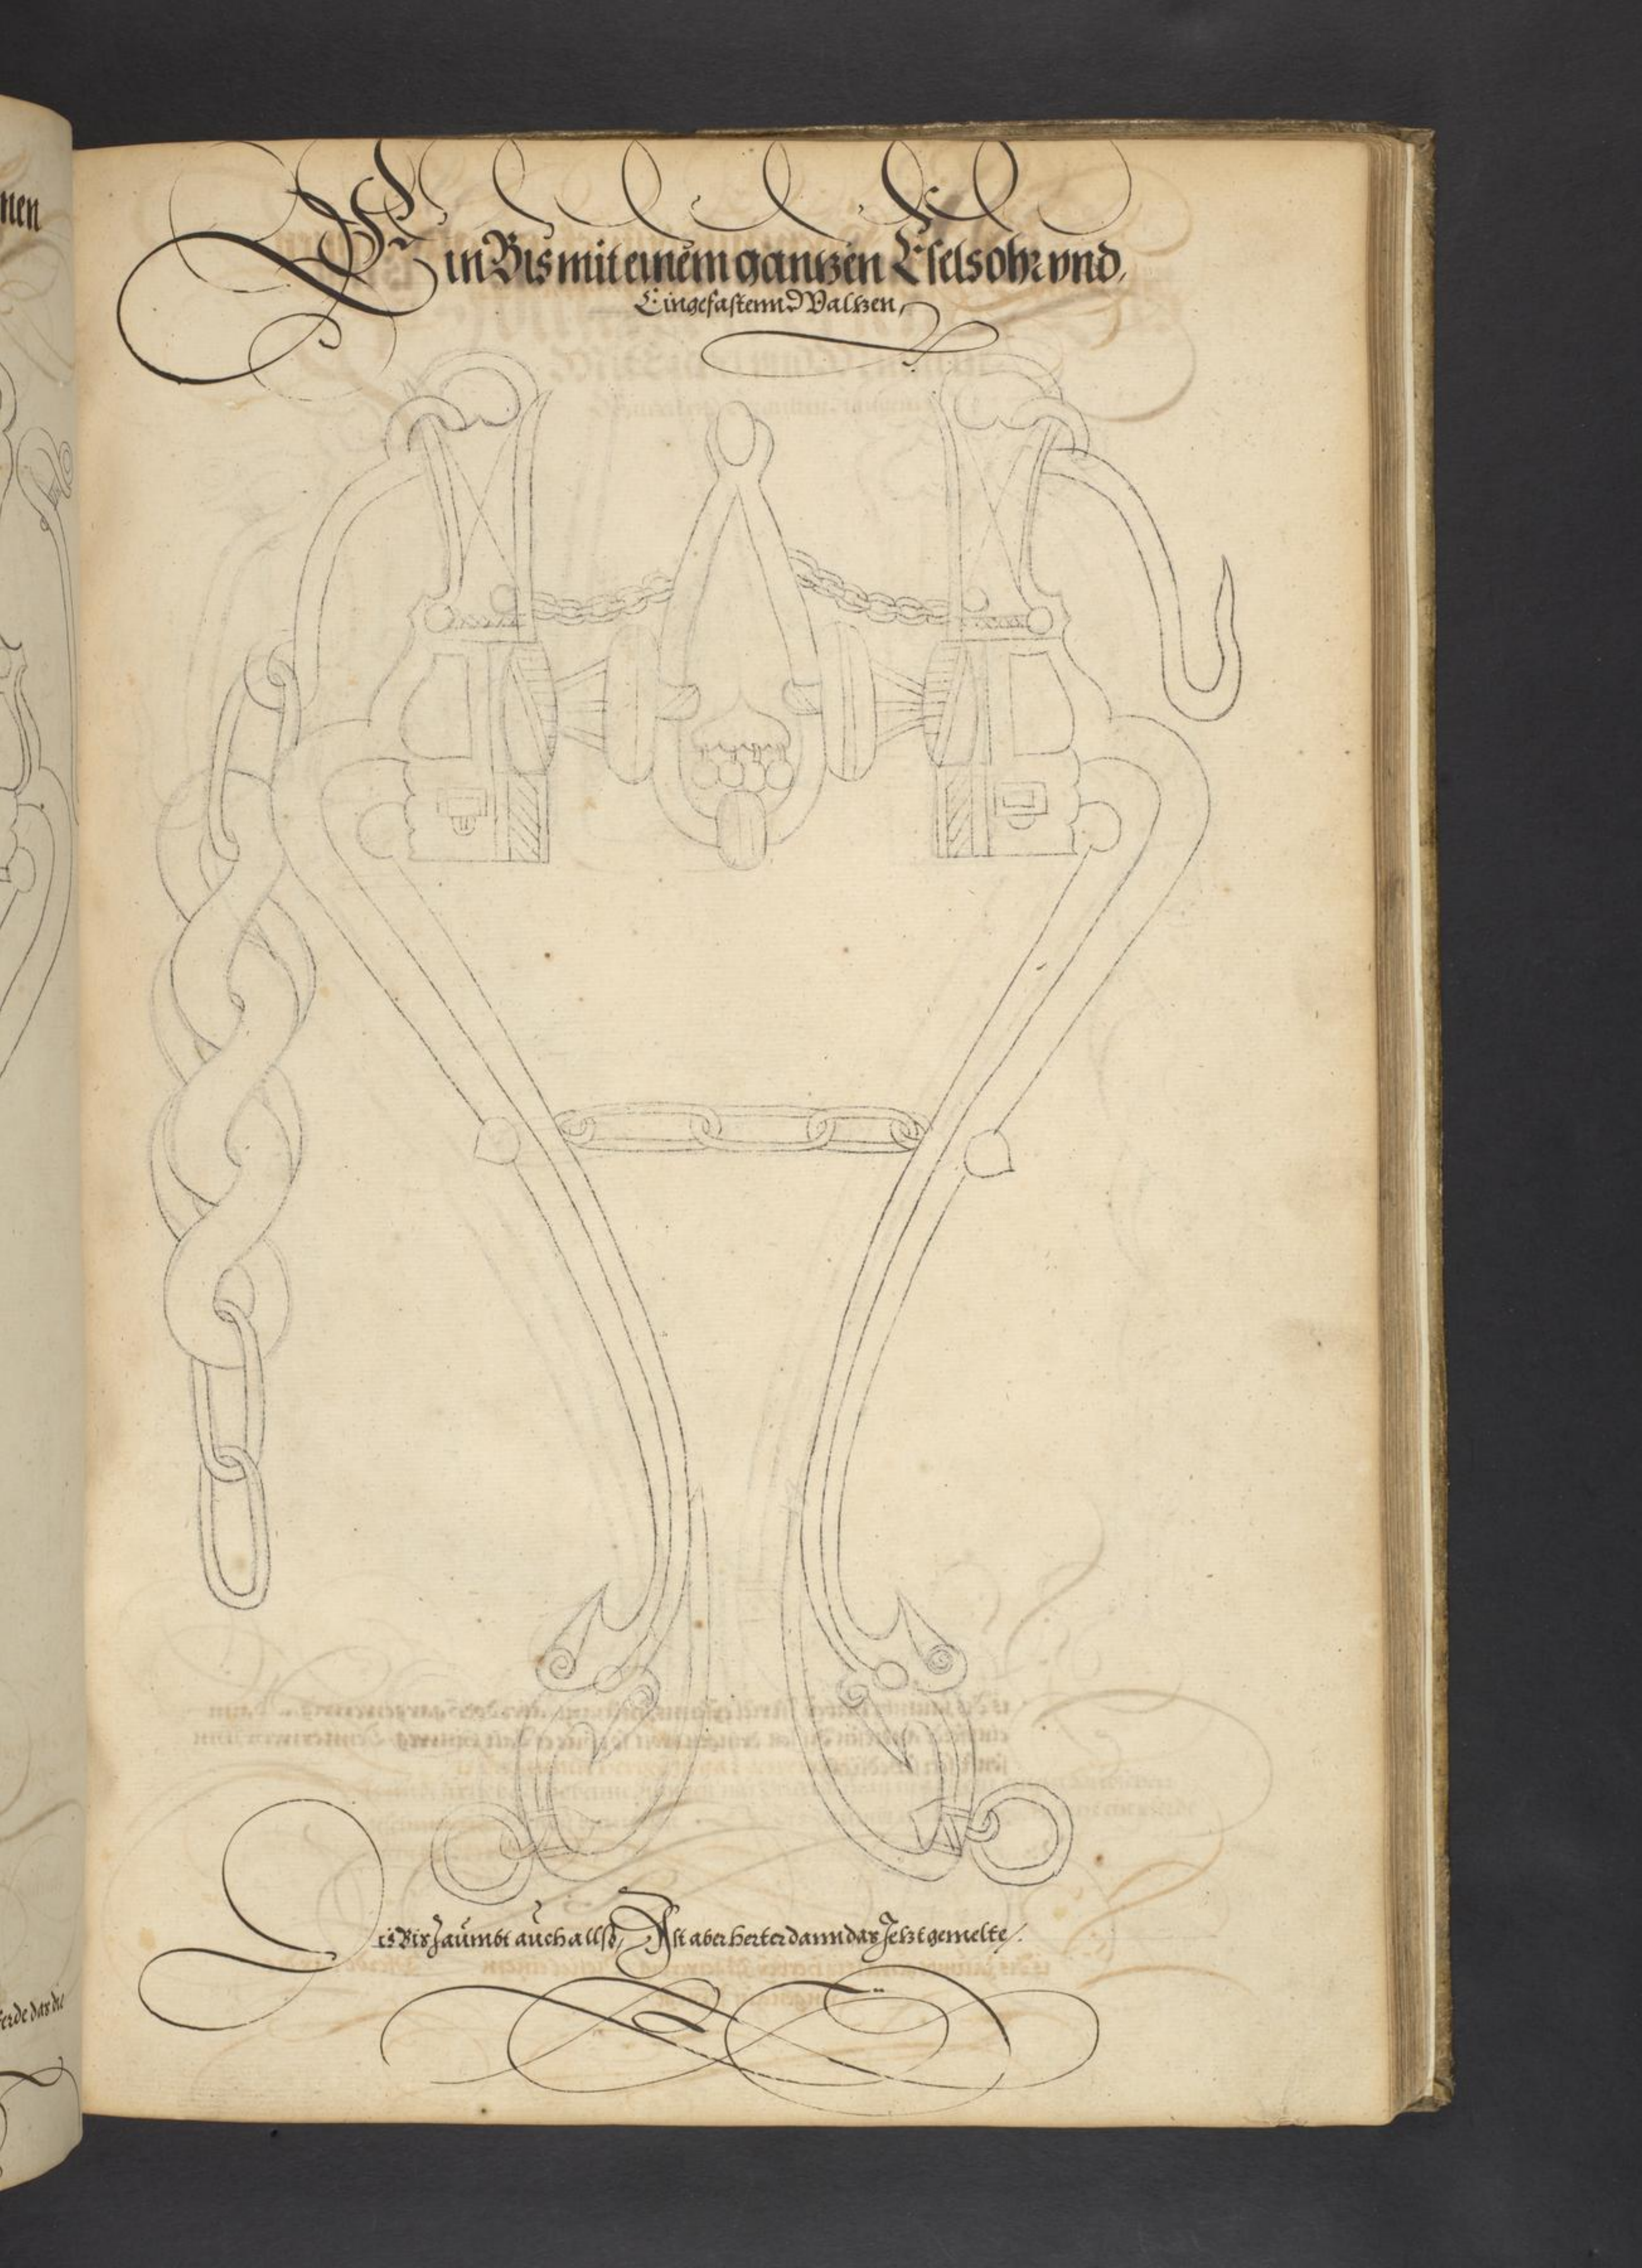 nen
Ein Bis mit einem gantzen Eselsohr vnd,
Eingefastenn Waltzen,
Dis Bis Zaumbt auch allso, Ist aber herter dann das Jetzt gemelte.
erde das die